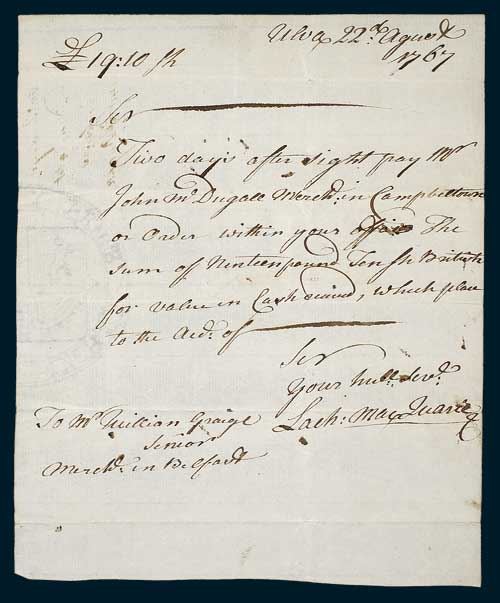 Ulva 22.d Agust
1767
£19:10 sh
Ser
Two days after sight pay Mr
John McDugall Merch.t in Campbeltown
or Order within your office The
sum of Ninteen pound Ten sh British
for value in Cash received, which place
to the Acc.t of
Ser
Your hull. Serv.t
Lach: MacQuarie
To Mr William Graige
Senior
Merch.t in Belfast